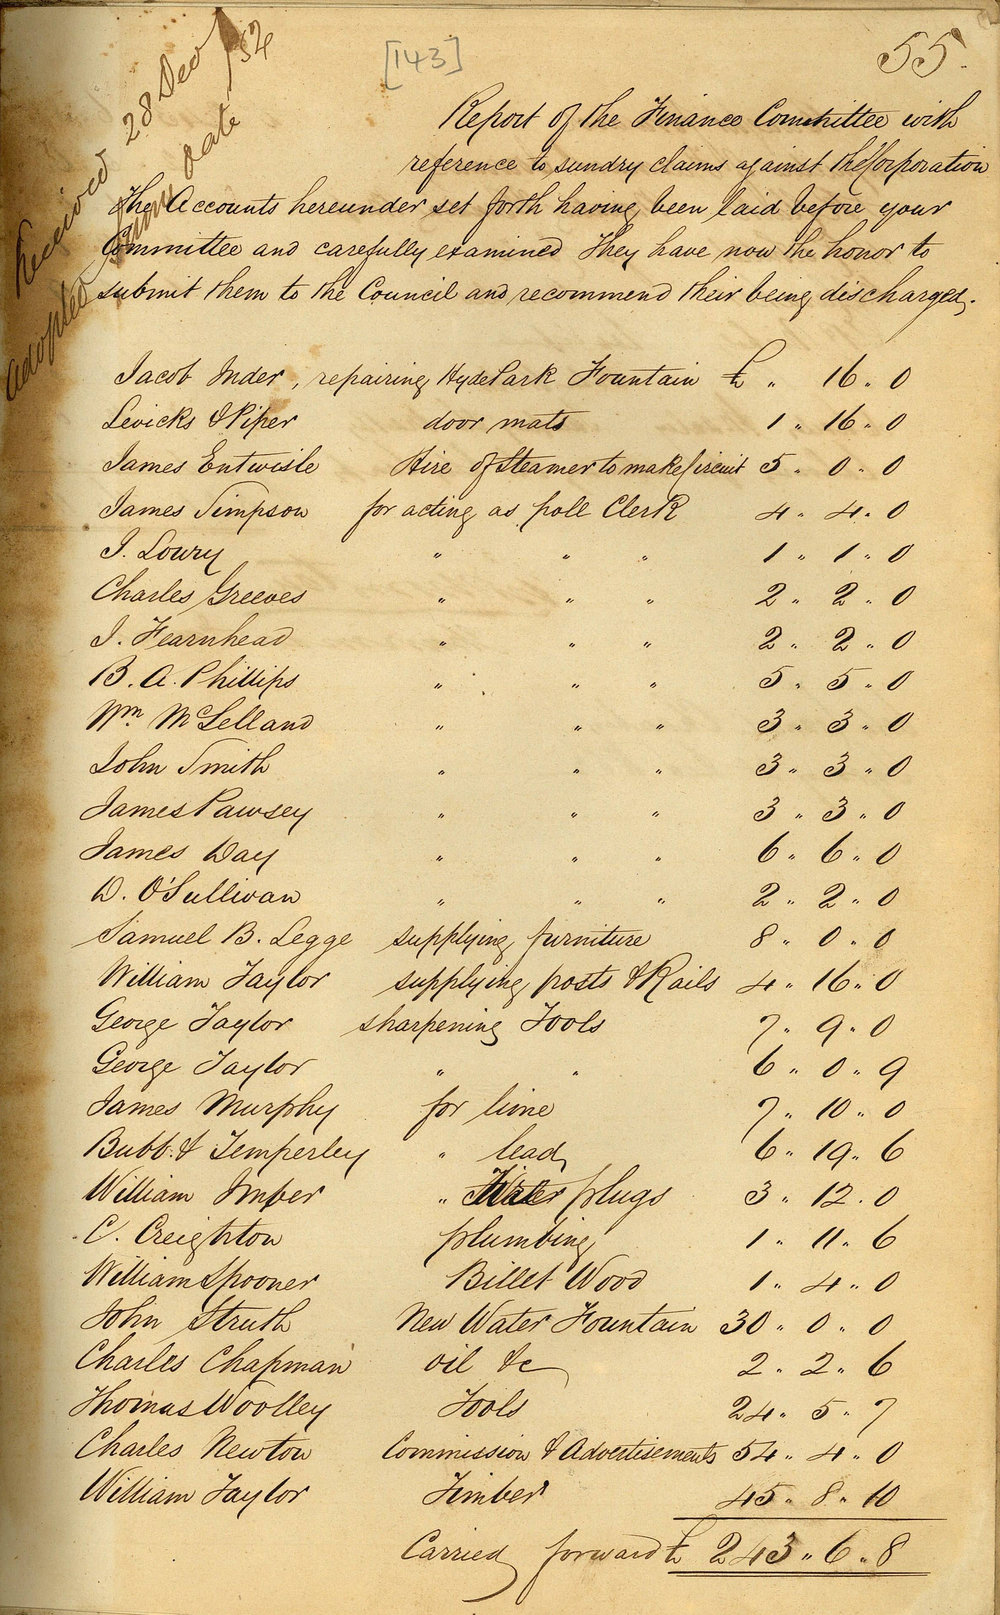 Received 28 Dec /52
Adopted same date
[143]
55.
Report of the Finance Committee with
reference to sundry claims against the Corporation
The Accounts hereunder set forth having been laid before your
Committee and carefully examined They have now the honor to
submit them to the Council and recommend their being discharged.
Jacob Inder, repairing Hyde Park Fountain £ " 16 " 0
Levicks & Piper door mats 1 " 16 " 0
James Entwisle Hire of Steamer to make Circuit 5 " 0 " 0
James Simpson for acting as poll Clerk 4 " 4 " 0
J. Lowry " " " 1 " 1 " 0
Charles Greeves " " " 2 " 2 " 0
J. Fearnhead " " " 2 " 2 " 0
B. A. Phillips " " " 5 " 5 " 0
Wm McLelland " " " 3 " 3 " 0
John Smith " " " 3 " 3 " 0
James Pawsey " " " 3 " 3 " 0
James Day " " " 6 " 6 " 0
D. O'Sullivan " " " 2 " 2 " 0
Samuel B. Legge supplying furniture 8 " 0 " 0
William Taylor supplying posts & Rails 4 " 16 " 0
George Taylor sharpening Tools 7 " 9 " 0
George Taylor " " 6 " 0 " 9
James Murphy for lime 7 " 10 " 0
Bubb & Temperley " lead 6 " 19 " 6
William Imber " Water plugs 3 " 12 " 0
C. Creighton plumbing 1 " 11 " 6
William Spooner Billet Wood 1 " 4 " 0
John Struth New Water Fountain 30 " 0 " 0
Charles Chapman oil &c 2 " 2 " 6
Thomas Woolley Tools 24 " 5 " 7
Charles Newton Commission & Advertisements 54 " 4 " 0
William Taylor Timber 45 " 8 " 10
Carried forward £ 243 " 6 " 8